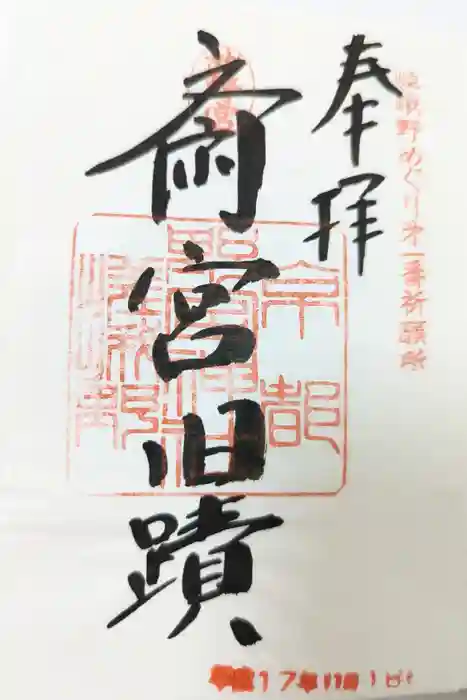 奉拝
嵯峨野めぐり才一番祈願所
斎宮旧蹟
京都
平成17年11月1日